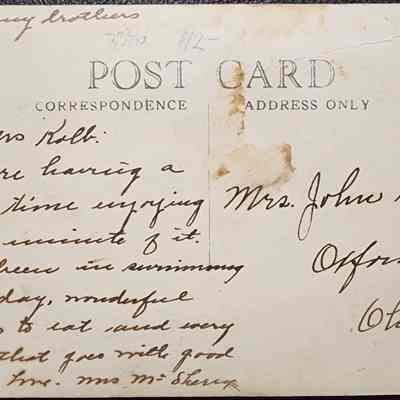 my brothers
$12-
POST CARD
CORRESPONDENCE ADDRESS ONLY
rs Kolb:
re having a
time enjoying
minute of it.
been in swimming
day, wonderful
s to eat and every
that goes with good
time. Mrs McSherry
Mrs. John
Oxfor
Oh